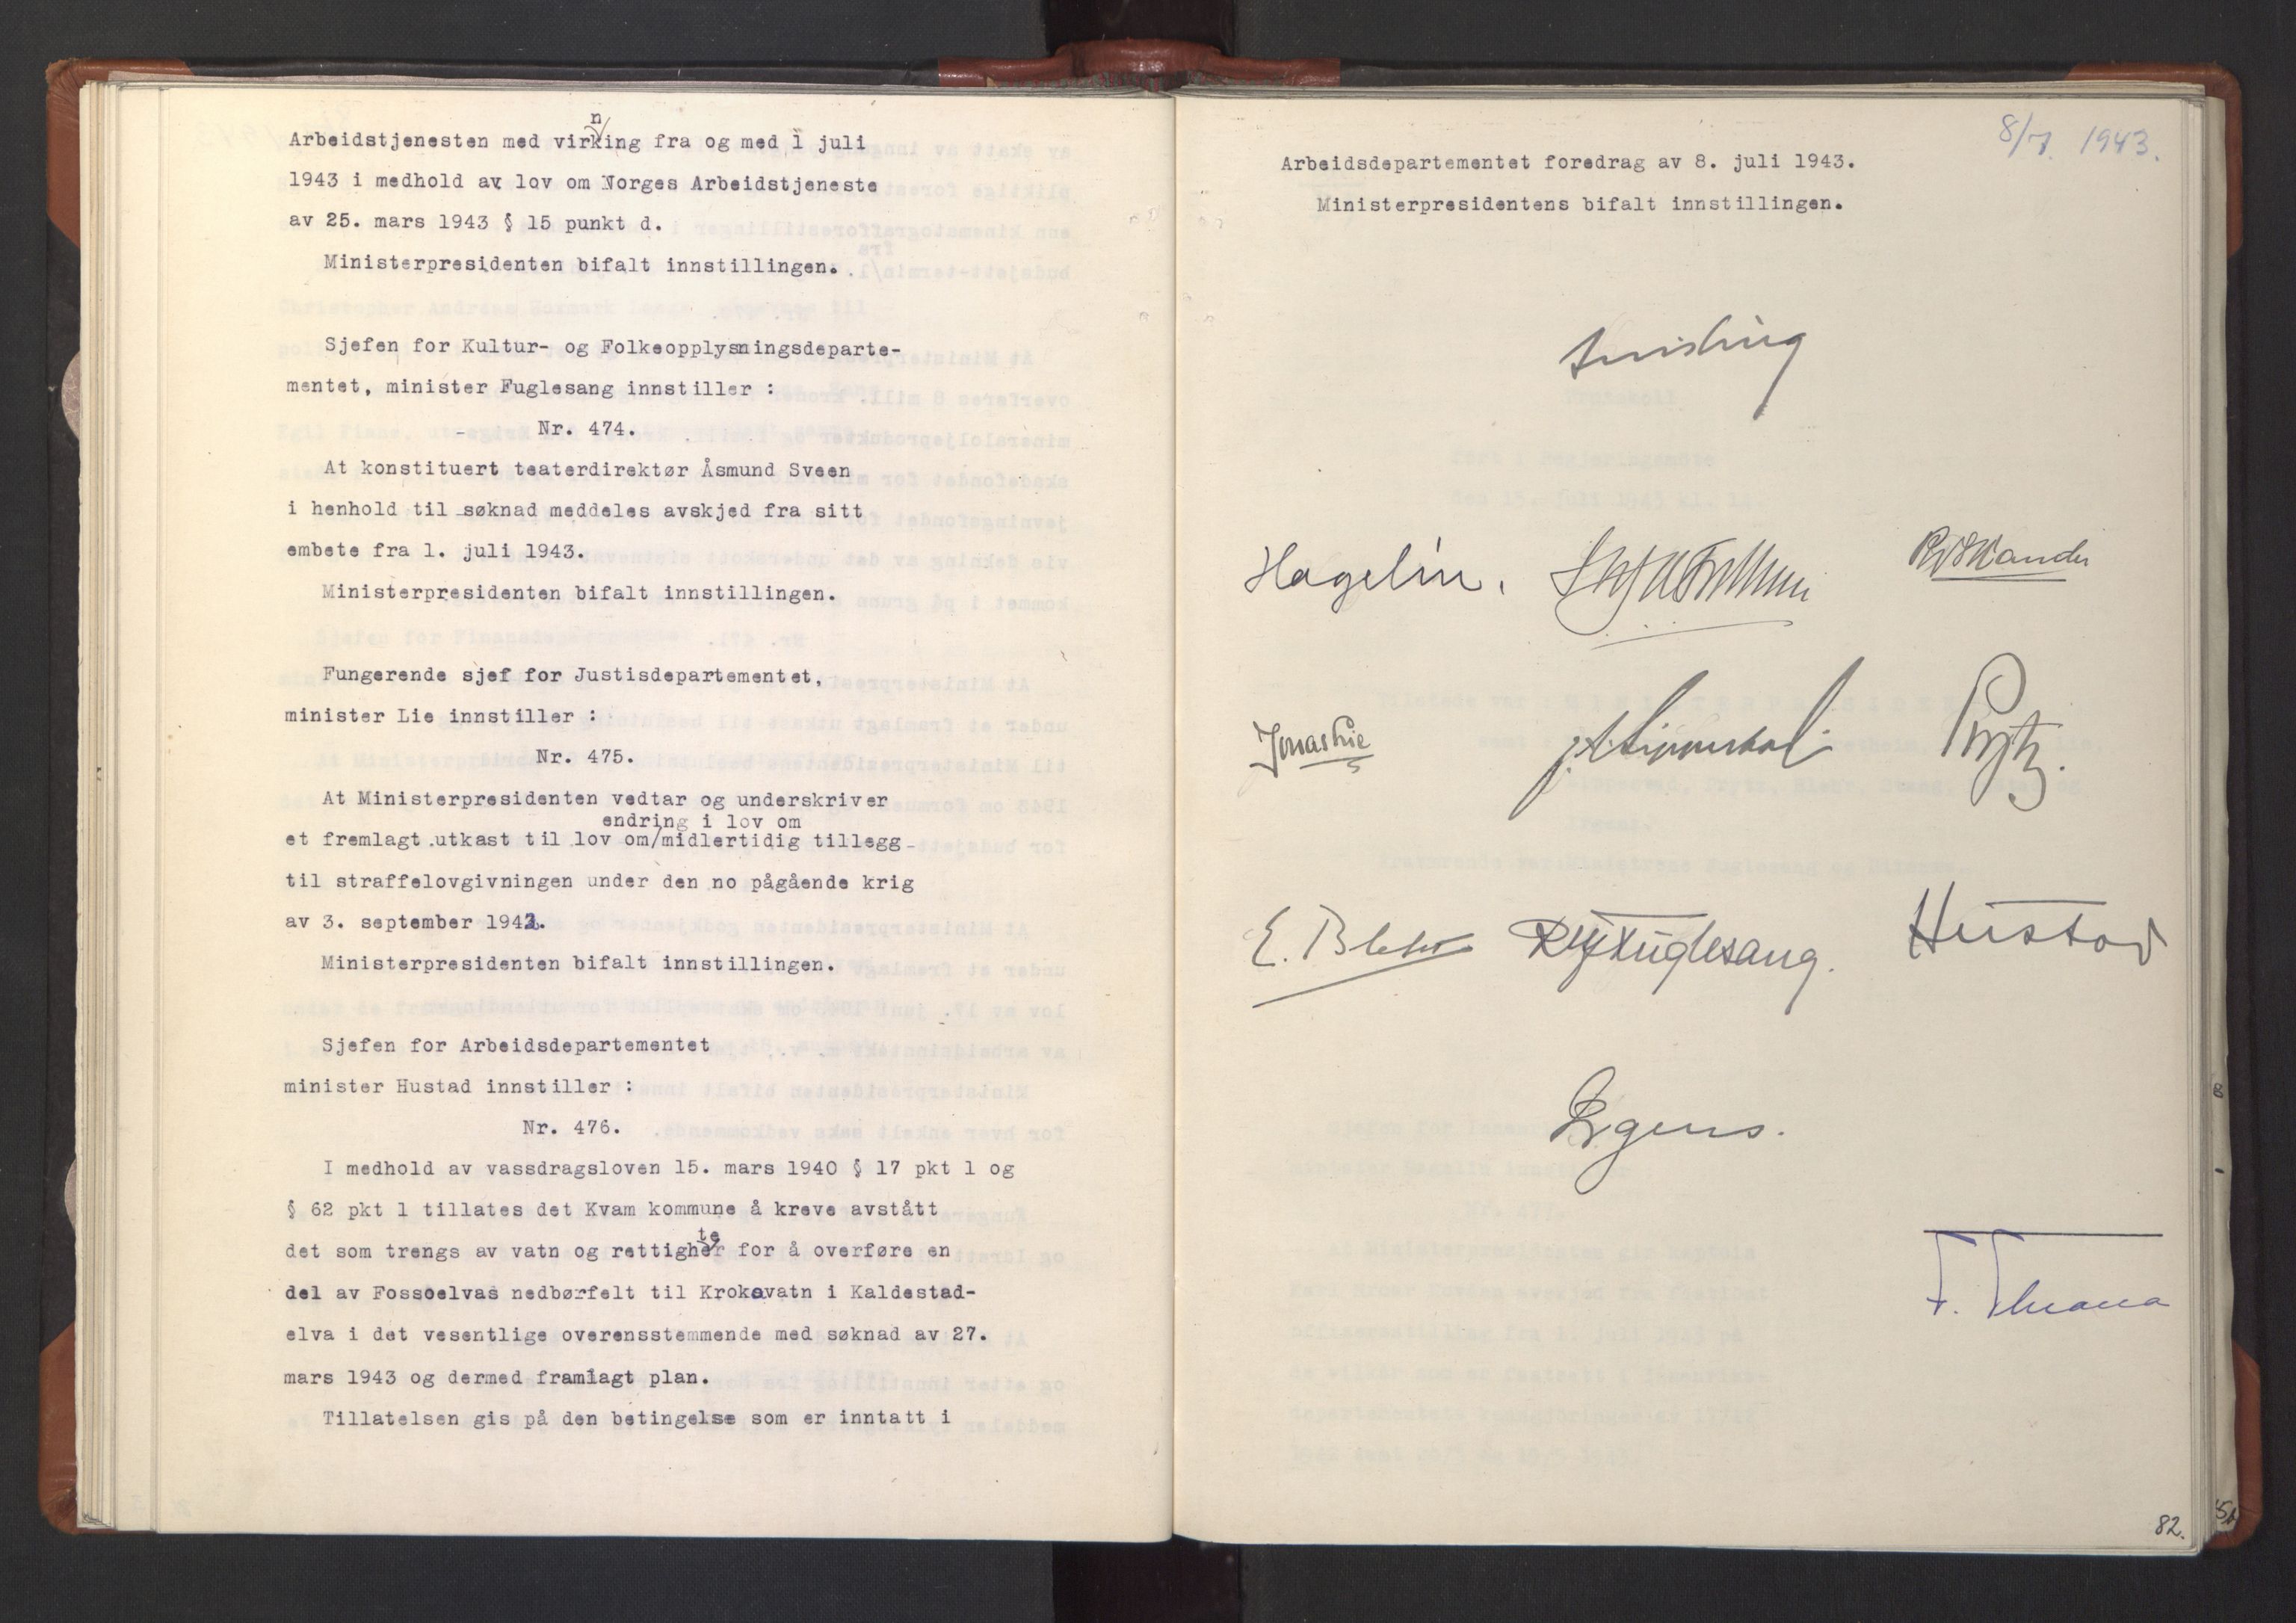 Arbeidstjenesten med virkning fra og med 1 juli
1943 i medhold av lov om Norges Arbeidstjeneste
av 25. mars 1943 § 15 punkt d.
Ministerpresidenten bifalt innstillingen.
Sjefen for Kultur- og Folkeopplysningsdeparte-
mentet, minister Fuglesang innstiller :
Nr. 474.
At konstituert teaterdirektør Åsmund Sveen
i henhold til søknad meddeles avskjed fra sitt
embete fra 1. juli 1943.
Ministerpresidenten bifalt innstillingen.
Fungerende sjef for Justisdepartementet,
minister Lie innstiller :
Nr. 475.
At Ministerpresidenten vedtar og underskriver
endring i lov om
et fremlagt utkast til lov om/midlertidig tillegg
til straffelovgivningen under den no pågående krig
av 3. september 1942.
Ministerpresidenten bifalt innstillingen.
Sjefen for Arbeidsdepartementet
minister Hustad innstiller :
Nr. 476.
I medhold av vassdragsloven 15. mars 1940 § 17 pkt 1 og
§ 62 pkt 1 tillates det Kvam kommune å kreve avstått
det som trengs av vatn og rettigheter for å overføre en
del av Fossoelvas nedbørfelt til Krokavatn i Kaldestad-
elva i det vesentlige overensstemmende med søknad av 27.
mars 1943 og dermed framlagt plan.
Tillatelsen gis på den betingelse som er inntatt i
8/7. 1943.
Arbeidsdepartementet foredrag av 8. juli 1943.
Ministerpresidentens bifalt innstillingen.
Quisling
Hagelin.
Jonas Lie
Prytz.
E. Blehr
R J Fuglesang.
Hustad
82.